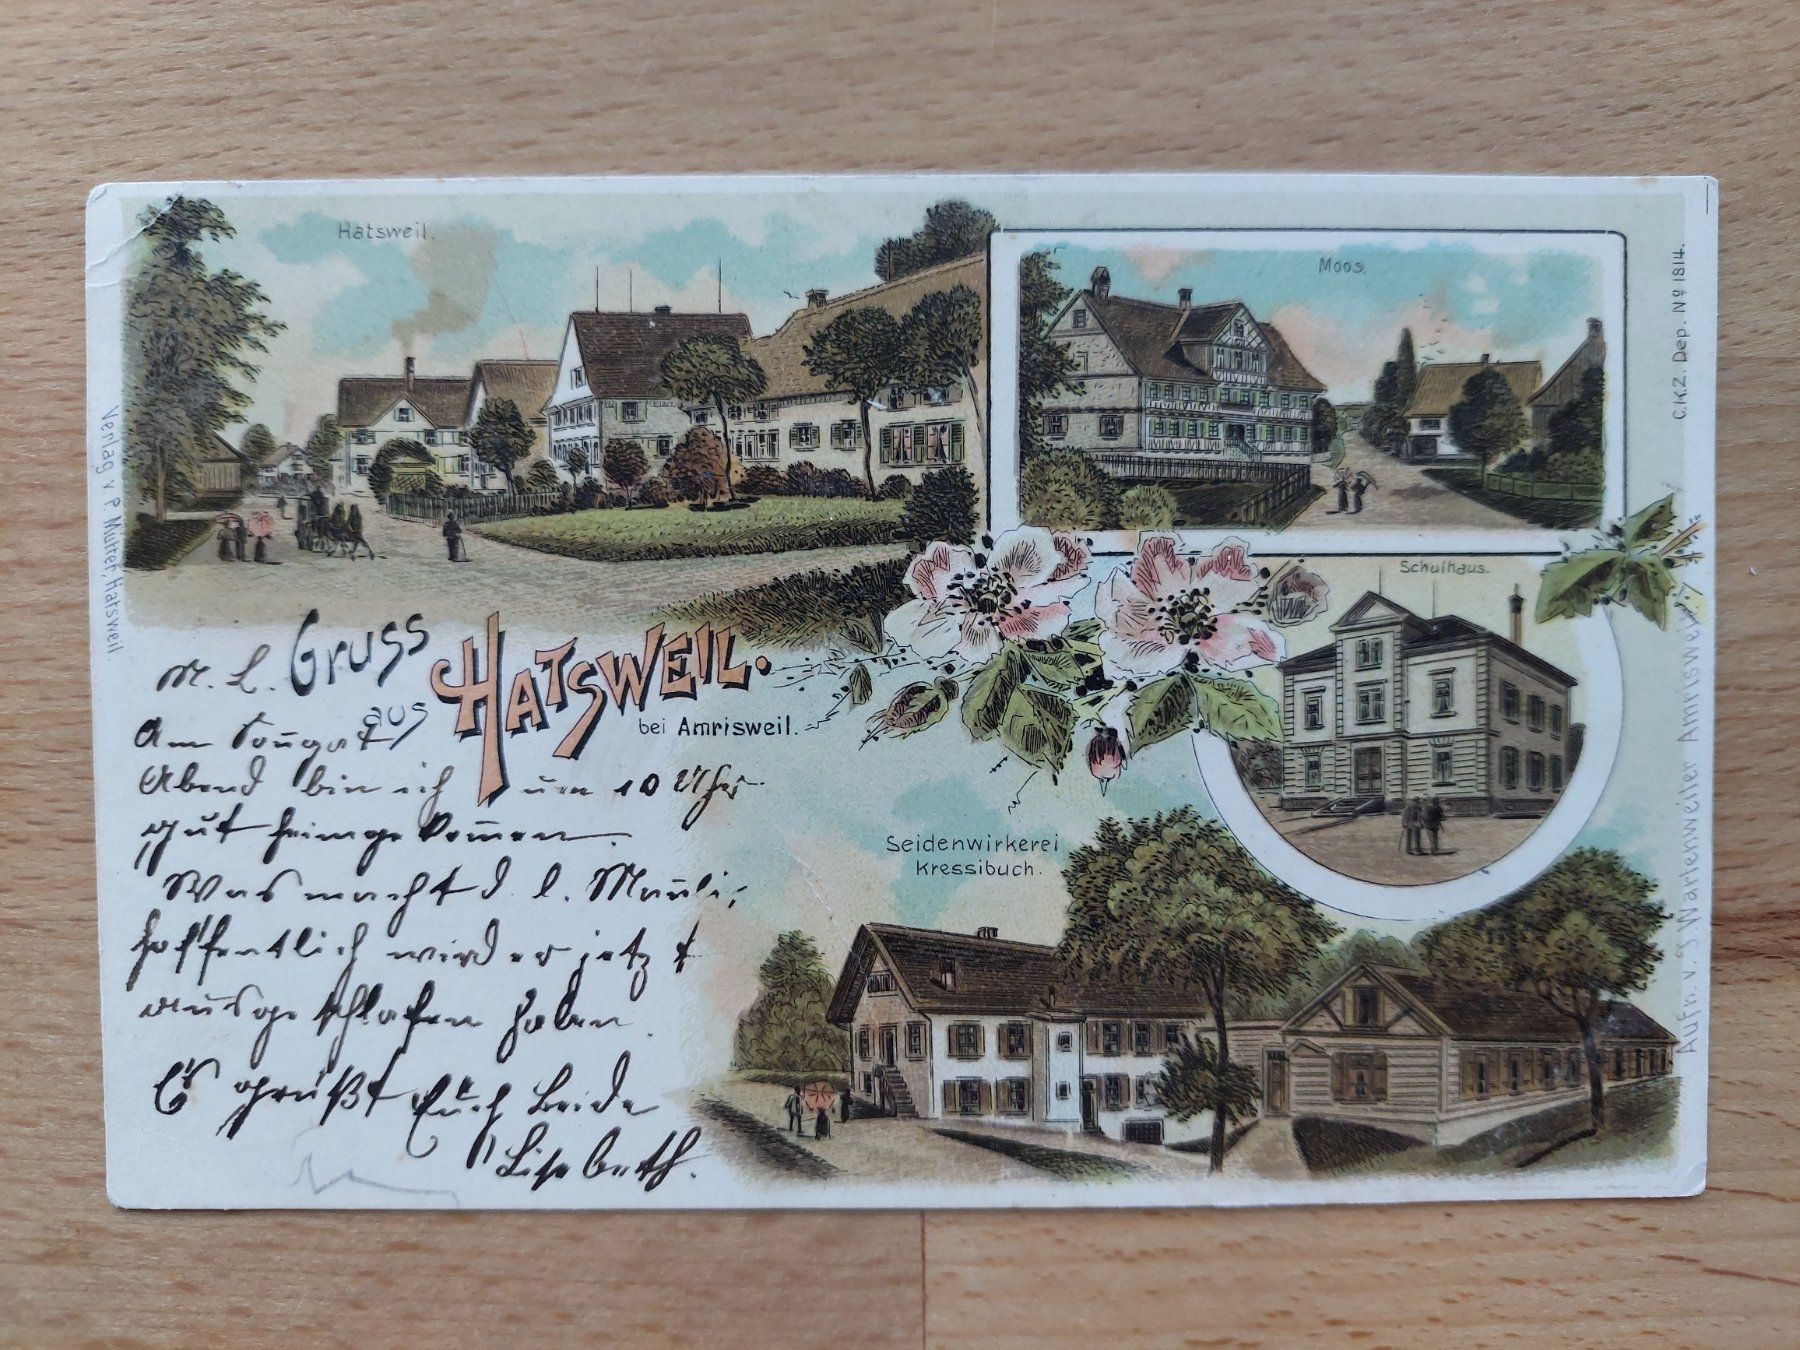 Hatsweil.
Moos.
C.K.Z. Dep. No 1814.
Verlag v. P. Mutter, Hatsweil.
Schulhaus.
Gruss
aus
HATSWEIL.
bei Amrisweil.
Seidenwirkerei
Kressibuch.
Aufn. v. S. Wartenweiler Amrisweil
M. L.
Am
Abend bin ich um 10 Uhr
gut heimgekommen.
Was macht d. l. Mauli,
hoffentlich wird er jetzt
ausgeschlafen haben.
Es grüßt Euch beide
Lisebeth.